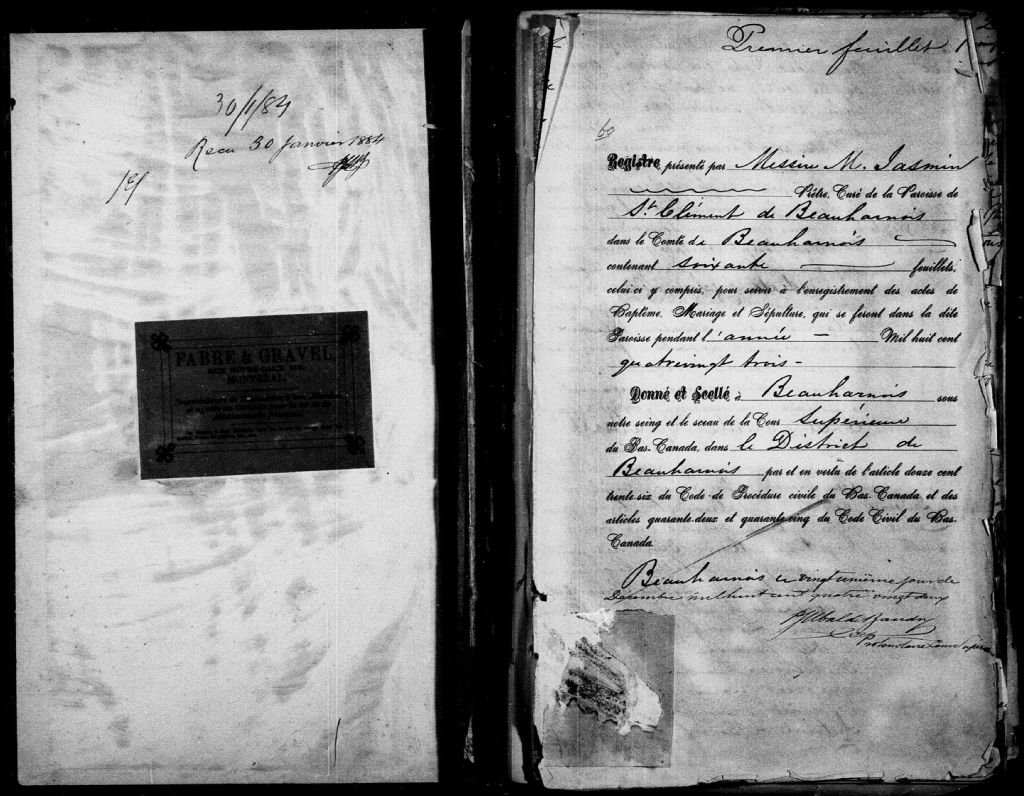 30/1/84
Recu 30 Janvier 1884
FABRE & GRAVEL
MONTRÉAL
Premier feuillet
60
Registre, présenté par Messire M. Jasmin
Prêtre, Curé de la Paroisse de
St. Clément de Beauharnois
dans le Comté de Beauharnois
contenant soixante feuillets,
celui-ci y compris, pour servir à l'enregistrement des actes de
Baptême, Mariage et Sépulture, qui se feront dans la dite
Paroisse pendant l'année — Mil huit cent
quatrevingt trois -
Donné et Scellé à Beauharnois sous
notre seing et le sceau de la Cour Supérieure
du Bas-Canada, dans le District de
Beauharnois par et en vertu de l'article douze cent
trente-six du Code de Procédure civile du Bas-Canada et des
articles quarante-deux et quarante-cinq du Code Civil du Bas-
Canada.
Beauharnois ce vingt unième jour de
Décembre mil huit cent quatre vingt deux
Protonotaire